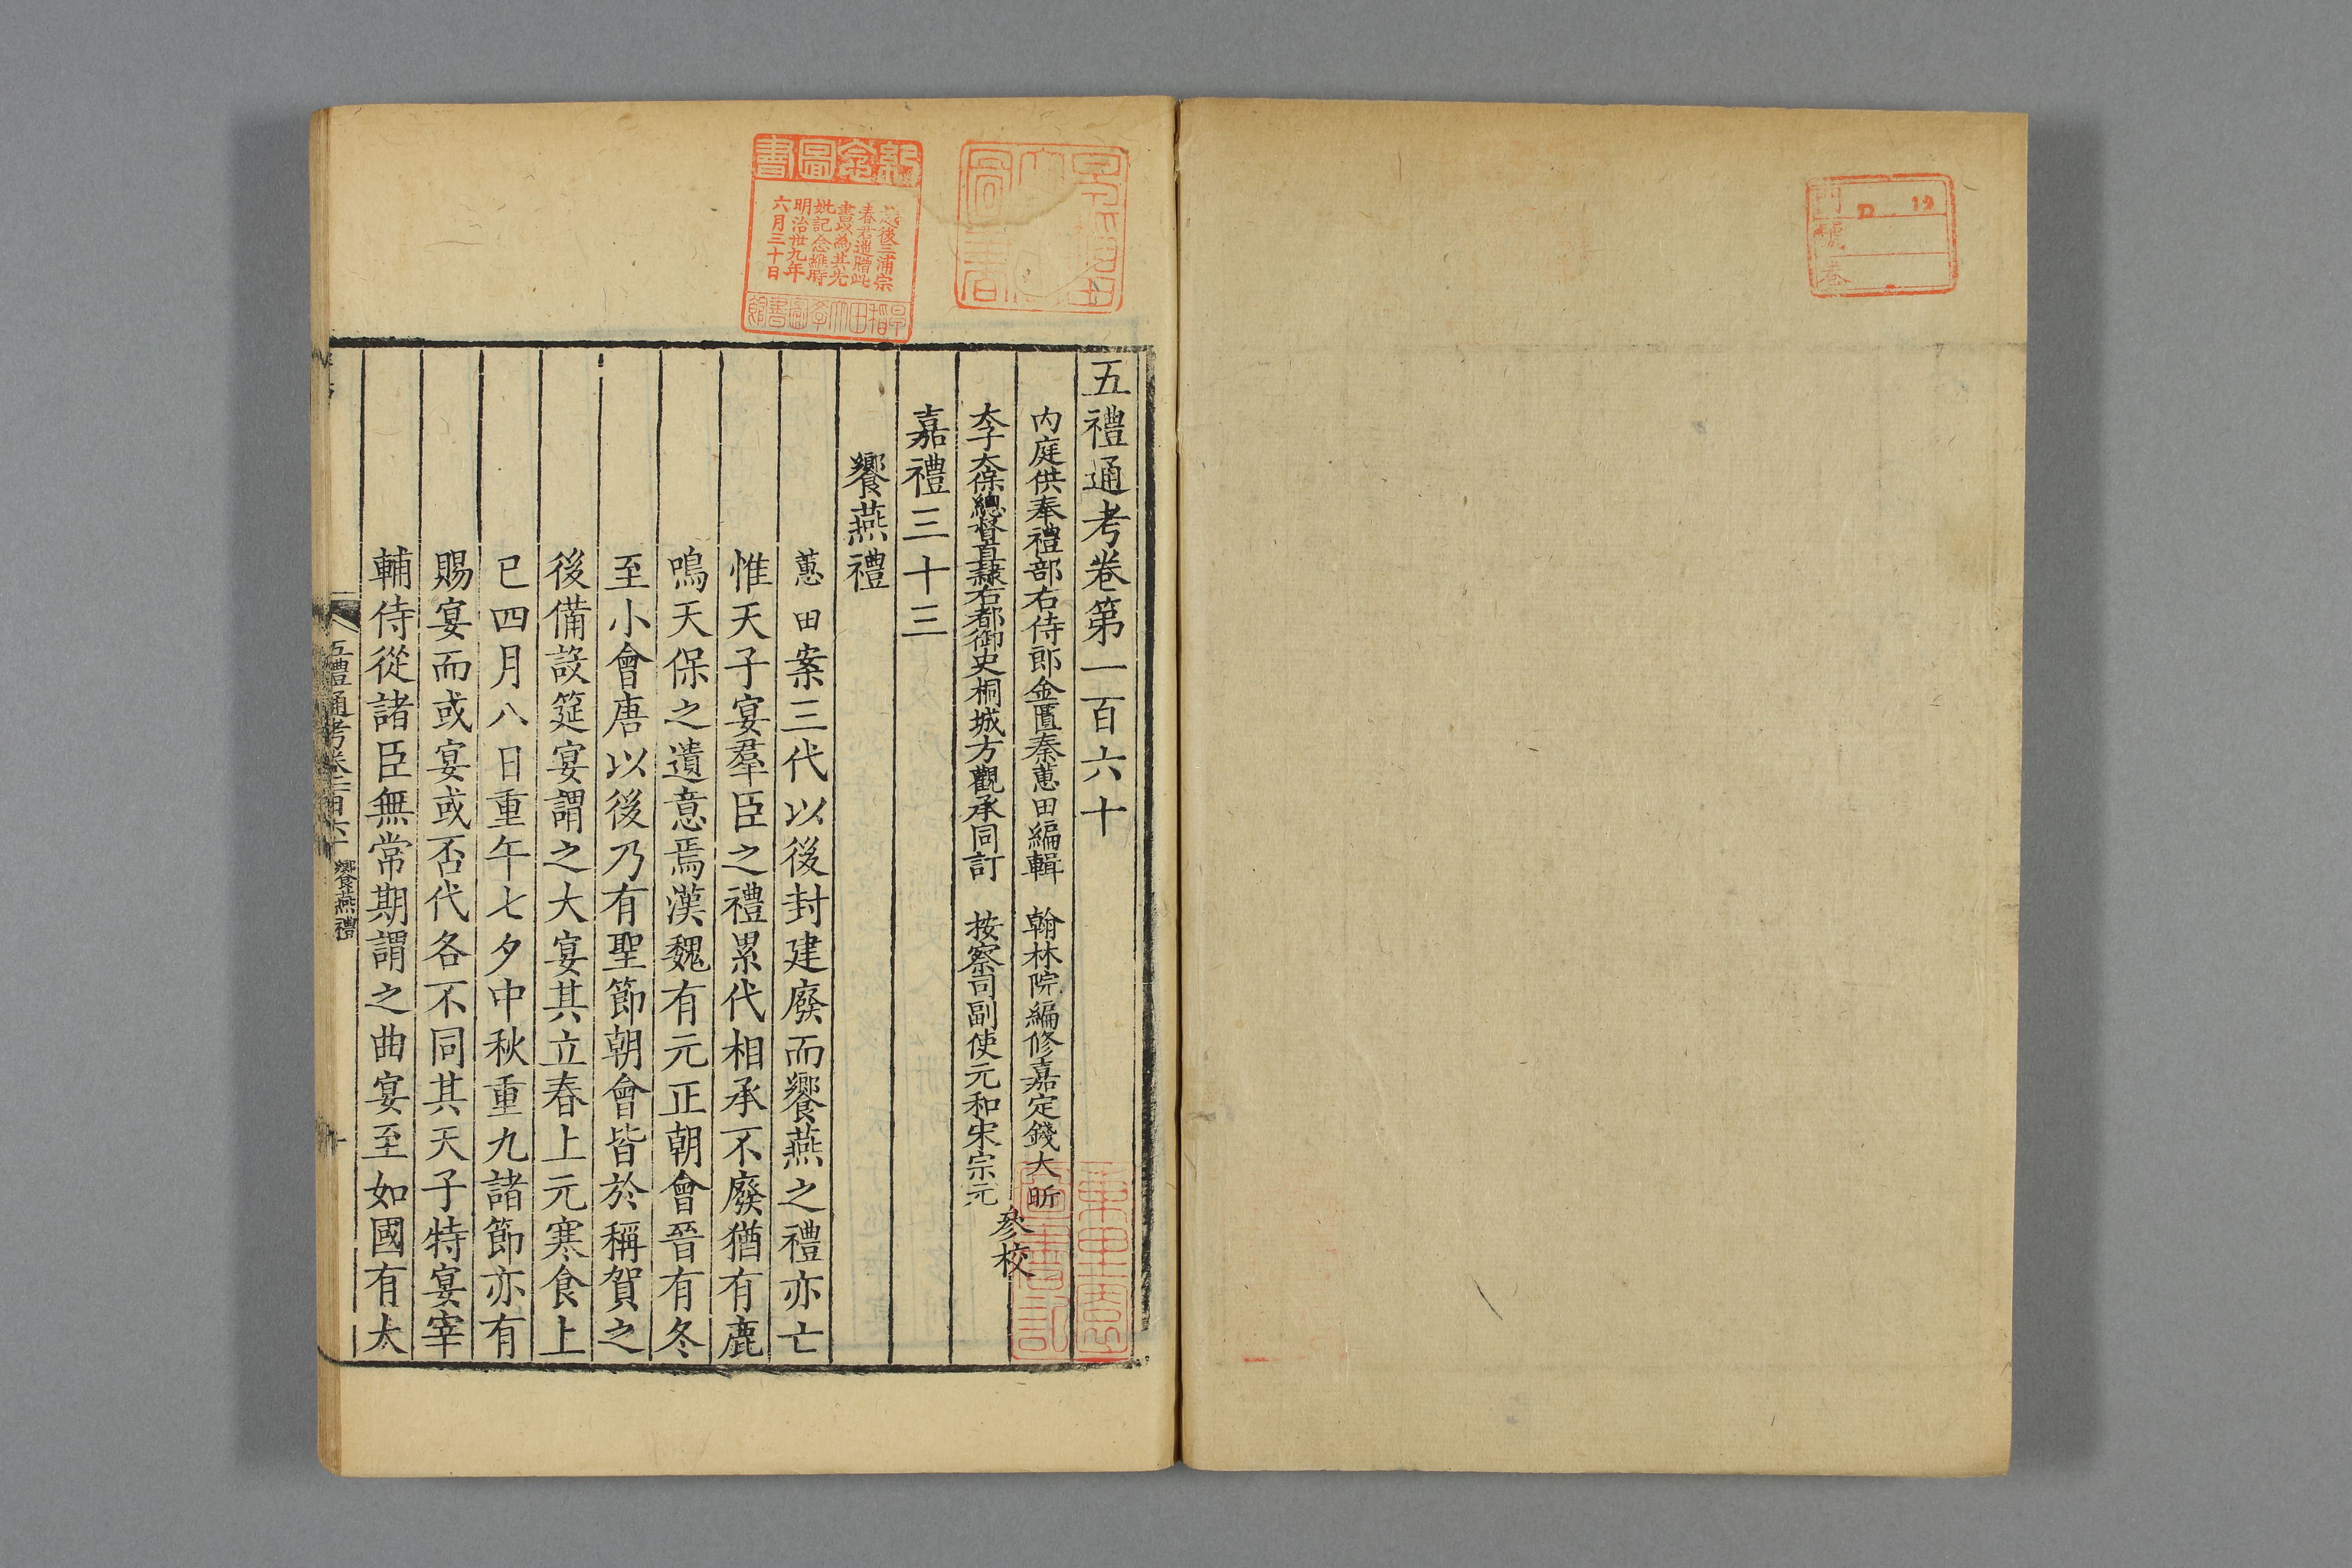 五禮通考卷第一百六十
內庭供奉禮部右侍郎金匱秦蕙田編輯 翰林院編修嘉定錢大昕
太子太保總督直隸右都御史桐城方觀承同訂 按察司副使元和宋宗元
參校
嘉禮三十三
饗燕禮
蕙田案三代以後封建廢而饗燕之禮亦亡
惟天子宴羣臣之禮累代相承不廢猶有鹿
鳴天保之遺意焉漢魏有元正朝會晉有冬
至小會唐以後乃有聖節朝會皆於稱賀之
後備設筵宴謂之大宴其立春上元寒食上
巳四月八日重午七夕中秋重九諸節亦有
賜宴而或宴或否代各不同其天子特宴宰
輔侍從諸臣無常期謂之曲宴至如國有大
五禮通考卷一百六十 饗燕禮
紀念圖書
越後三浦宗
春君遥贈此
書以為其先
妣記念維時
明治卅九年
六月三十日
早稻田大學圖書館
門
號
卷